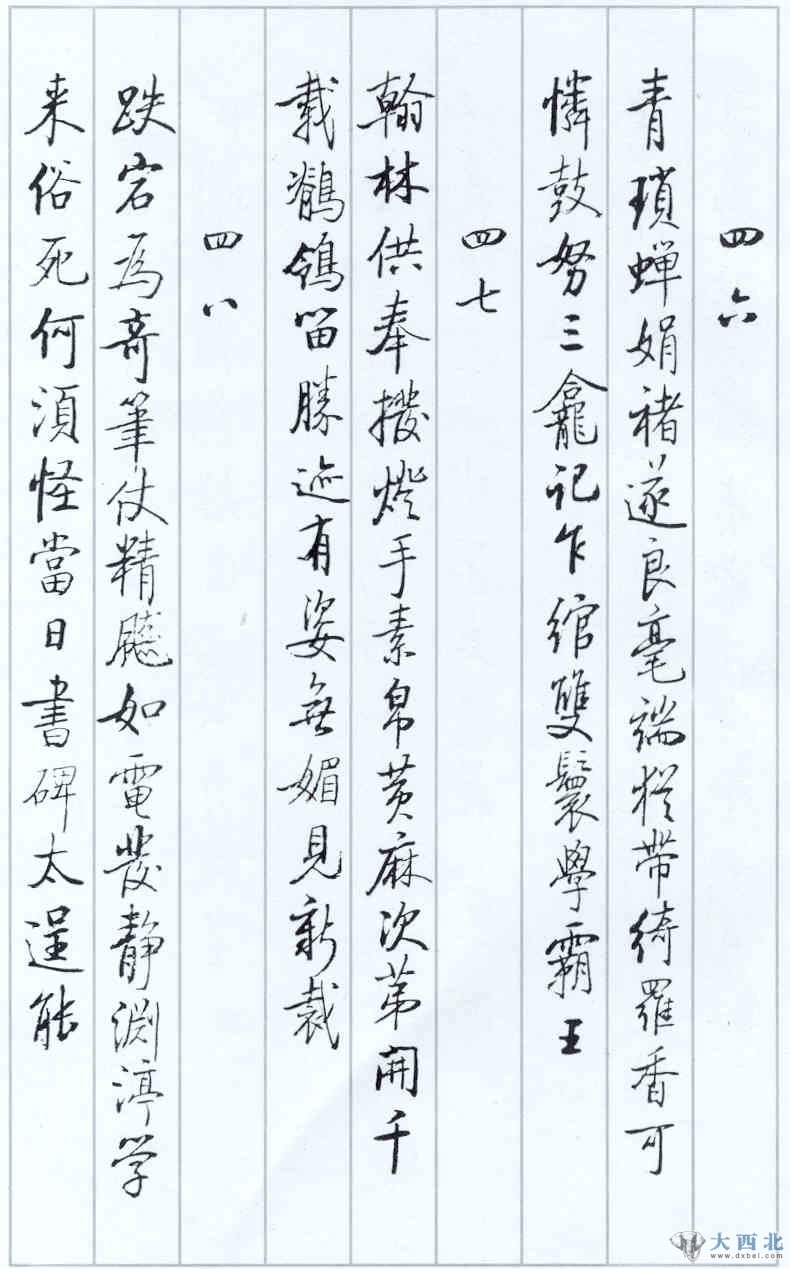 四六
青瑣蟬娟褚遂良毫端猶带綺羅香可
憐鼓努三龕記乍綰雙鬟學霸王
四七
翰林供奉撥燈手素帛黄麻次苐開千
載鶺鴒留勝迹有姿無媚見新裁
四八
跌宕為奇筆仗精飈如電發静渊渟学
来俗死何須怪當日書碑太逞能
大西北
www.dxbei.com